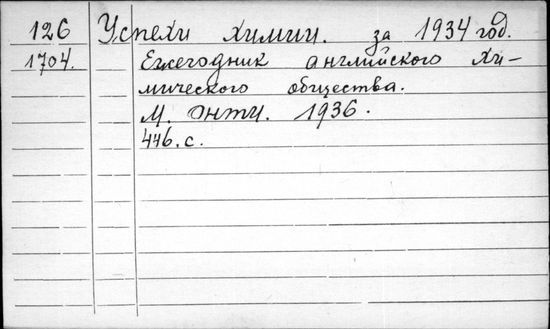 126 Успехи химии. за 1934 год.
1704. Ежегодник английского хи-
мического общества.
М. ОНТИ. 1936.
446.с.